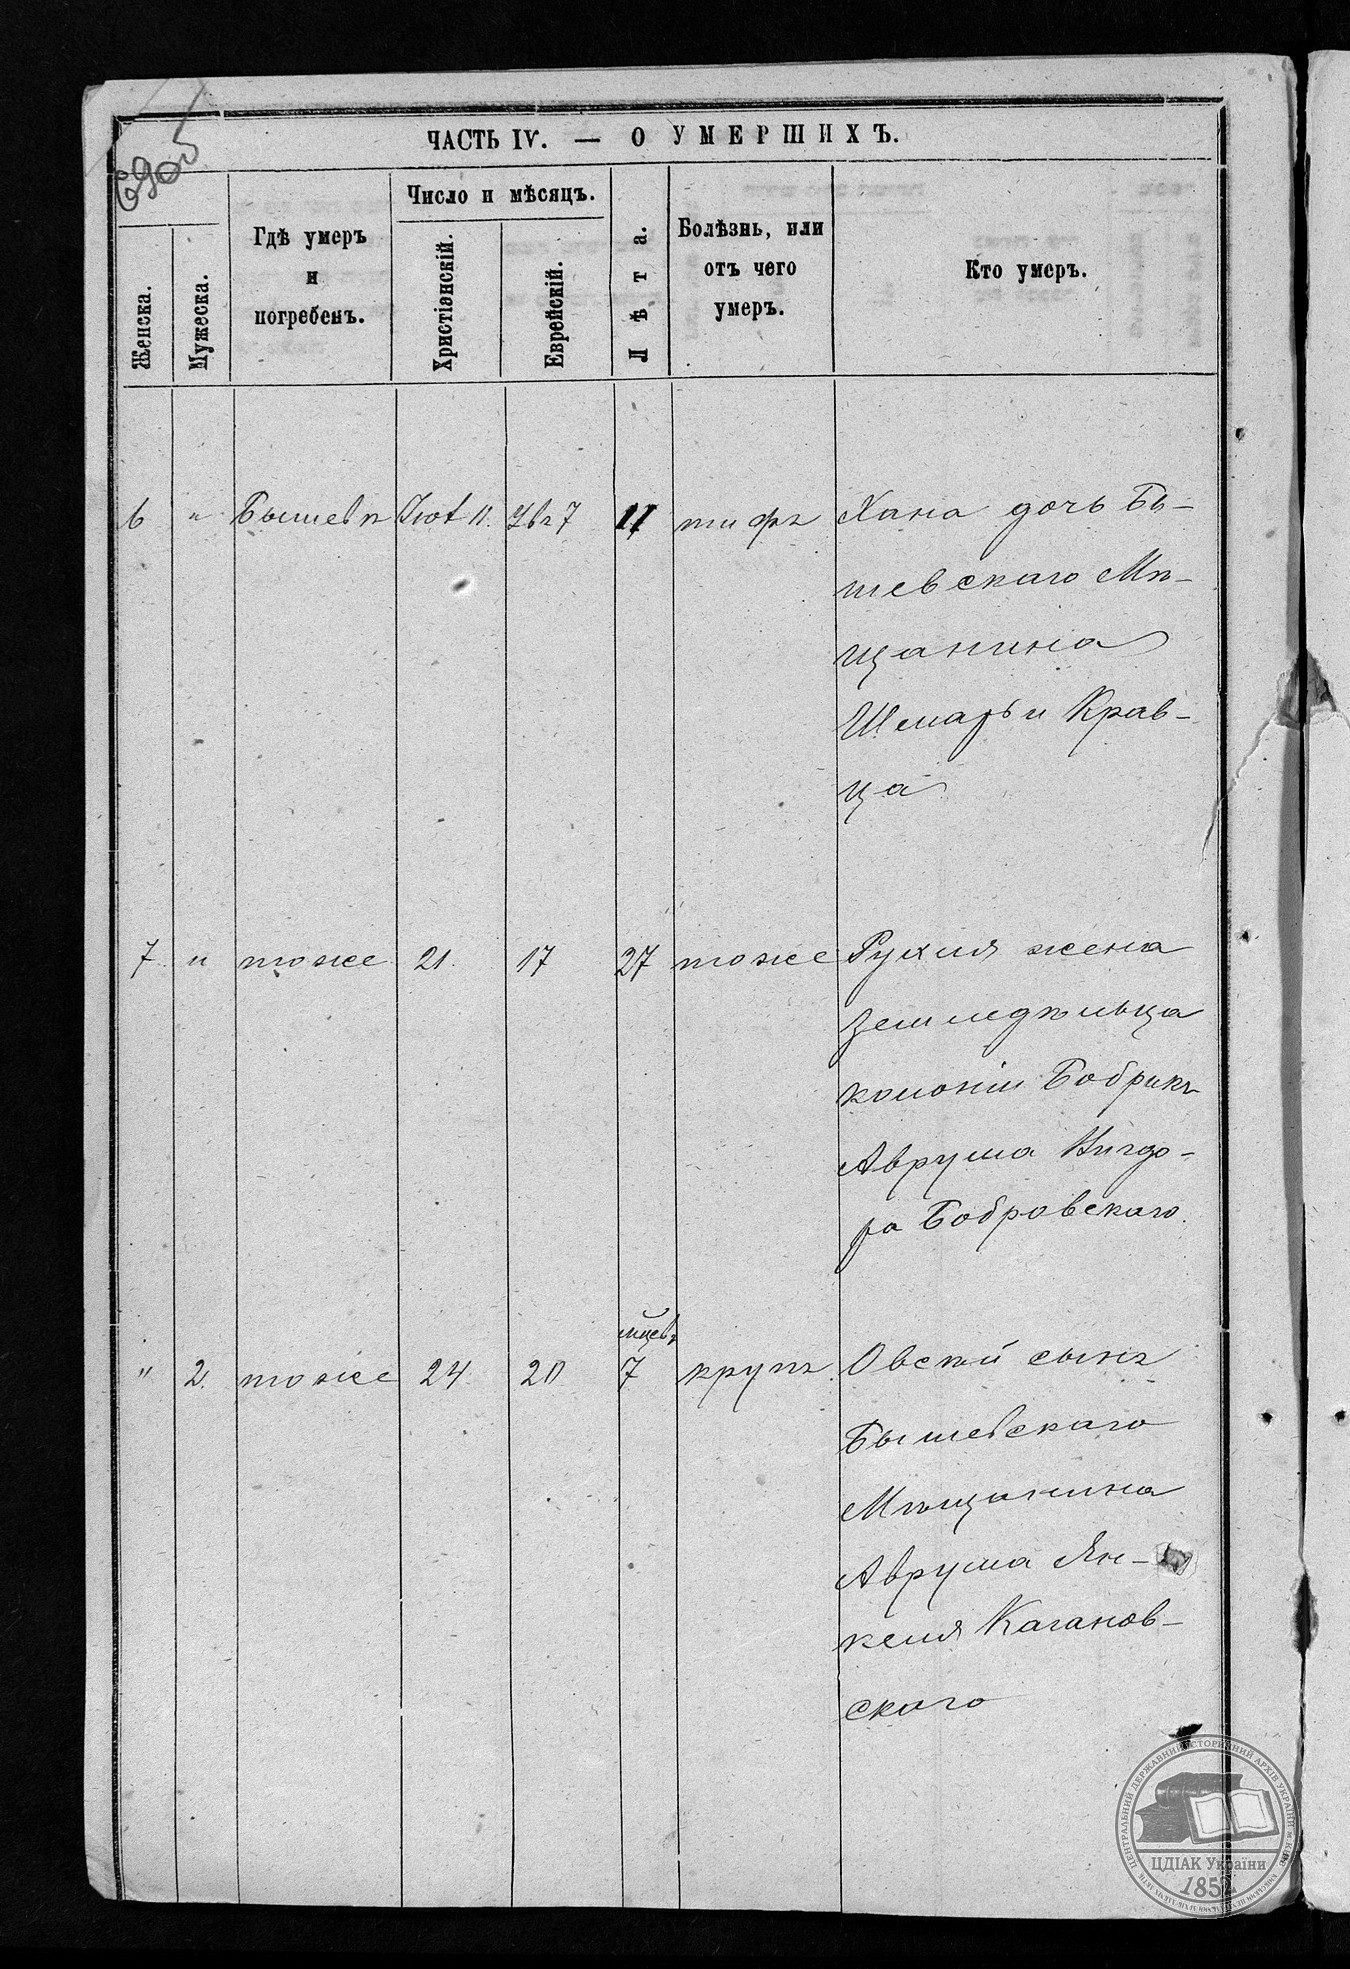 ЧАСТЬ IV. — О УМЕРШИХЪ.
Женска.
Мужеска.
Гдѣ умеръ
и
погребенъ.
Число и мѣсяцъ.
Христіанскій.
Еврейскій.
Лѣта.
Болѣзнь, или
отъ чего
умеръ.
Кто умеръ.
6 " Бышевѣ 11. 7 11 тифъ Хана дочь Бы-
шевскаго Мѣ-
щанина
Шмарьи Крав-
ца
7 " тоже 21. 17 27 тоже Рухля жена
земледѣльца
колоніи Бобрикъ
Аврума
ра Бобровскаго.
" 2. тоже 24. 20 мцевъ
7 крупъ. Овсѣй сынъ
Бышевскаго
Мѣщанина
Аврума Ян-
келя Каганов-
скаго
ЦЕНТРАЛЬНИЙ ДЕРЖАВНИЙ ІСТОРИЧНИЙ АРХІВ УКРАЇНИ м. КИЇВ
ЦДІАК України
1852